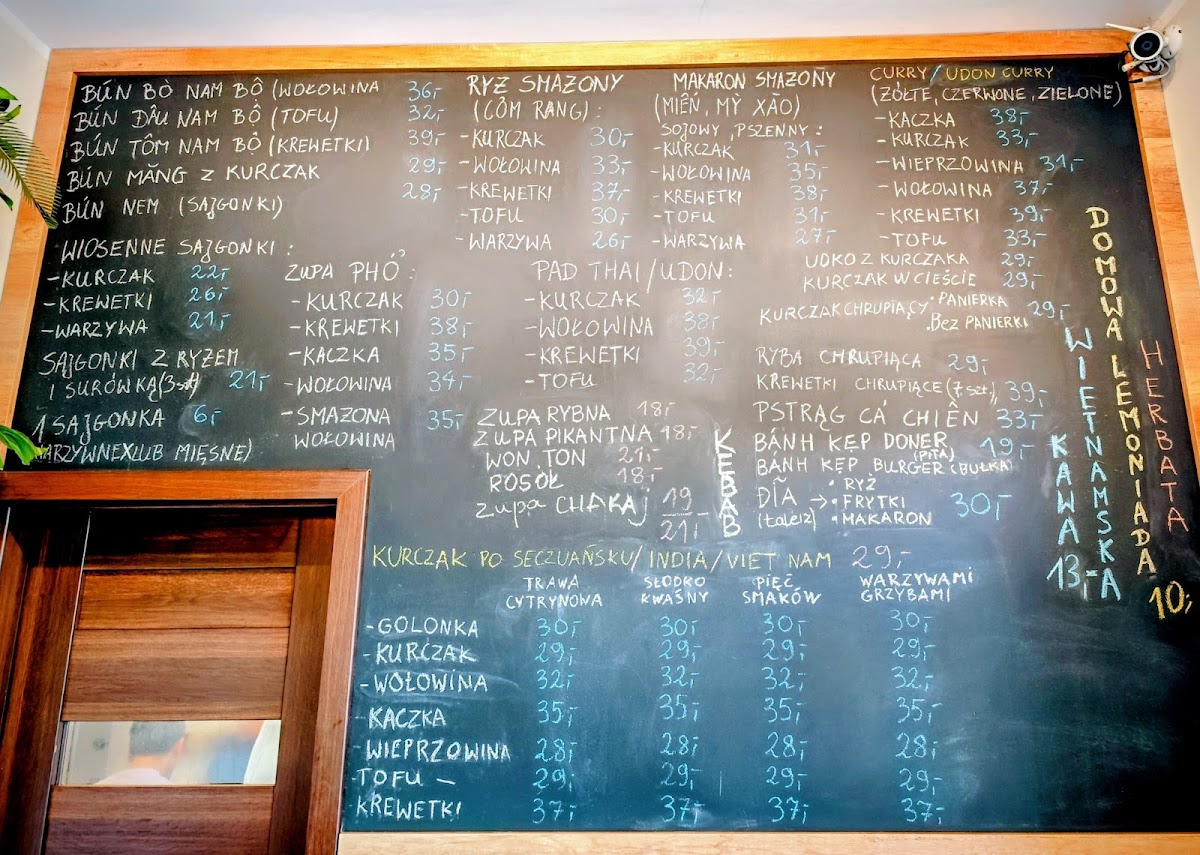 BÚN BÒ NAM BÔ (WOŁOWINA 36,-
BÚN ĐÂU NAM BÔ (TOFU) 32,-
BÚN TÔM NAM BÔ (KREWETKI) 39,-
BÚN MĂNG Z KURCZAK 29,-
BÚN NEM (SAJGONKI) 28,-
WIOSENNE SAJGONKI :
-KURCZAK 22,-
-KREWETKI 26,-
-WARZYWA 21,-
SAJGONKI Z RYŻEM
I SURÓWKĄ (3szt) 21,-
1 SAJGONKA 6,-
WARZYWNEX LUB MIĘSNE)
ZUPA PHỞ :
-KURCZAK 30,-
-KREWETKI 38,-
-KACZKA 35,-
-WOŁOWINA 34,-
-SMAŻONA 35,-
WOŁOWINA
RYŻ SMAŻONY
(CÔM RANG) :
-KURCZAK 30,-
-WOŁOWINA 33,-
-KREWETKI 37,-
-TOFU 30,-
-WARZYWA 26,-
MAKARON SMAŻONY
(MIẾN, MỲ XÀO)
SOJOWY, PSZENNY :
-KURCZAK 31,-
-WOŁOWINA 35,-
-KREWETKI 38,-
-TOFU 31,-
-WARZYWA 27,-
CURRY / UDON CURRY
(ŻÓŁTE, CZERWONE, ZIELONE)
-KACZKA 38,-
-KURCZAK 33,-
-WIEPRZOWINA 31,-
-WOŁOWINA 37,-
-KREWETKI 39,-
-TOFU 33,-
UDKO Z KURCZAKA 29,-
KURCZAK W CIEŚCIE 29,-
KURCZAK CHRUPIĄCY • PANIERKA 29,-
• BEZ PANIERKI
PAD THAI / UDON :
-KURCZAK 32,-
-WOŁOWINA 38,-
-KREWETKI 39,-
-TOFU 32,-
ZUPA RYBNA 18,-
ZUPA PIKANTNA 18,-
WON TON 21,-
ROSÓŁ 18,-
19
21,-
KEBAB
RYBA CHRUPIĄCA 29,-
KREWETKI CHRUPIĄCE (7szt.) 39,-
PSTRĄG CÁ CHIÊN 33,-
BÁNH KẸP DONER 19,-
(PITA)
BÁNH KẸP BURGER (BUŁKA)
DĨA → • RYŻ
(talerz) • FRYTKI 30,-
• MAKARON
KAWA WIETNAMSKA 13,-
DOMOWA LEMONIADA 10,-
HERBATA
KURCZAK PO SECZUAŃSKU / INDIA / VIET NAM 29,-
TRAWA CYTRYNOWA SŁODKO KWAŚNY PIĘĆ SMAKÓW WARZYWAMI GRZYBAMI
-GOLONKA 30,- 30,- 30,- 30,-
-KURCZAK 29,- 29,- 29,- 29,-
-WOŁOWINA 32,- 32,- 32,- 32,-
-KACZKA 35,- 35,- 35,- 35,-
-WIEPRZOWINA 28,- 28,- 28,- 28,-
-TOFU - 29,- 29,- 29,- 29,-
KREWETKI 37,- 37,- 37,- 37,-